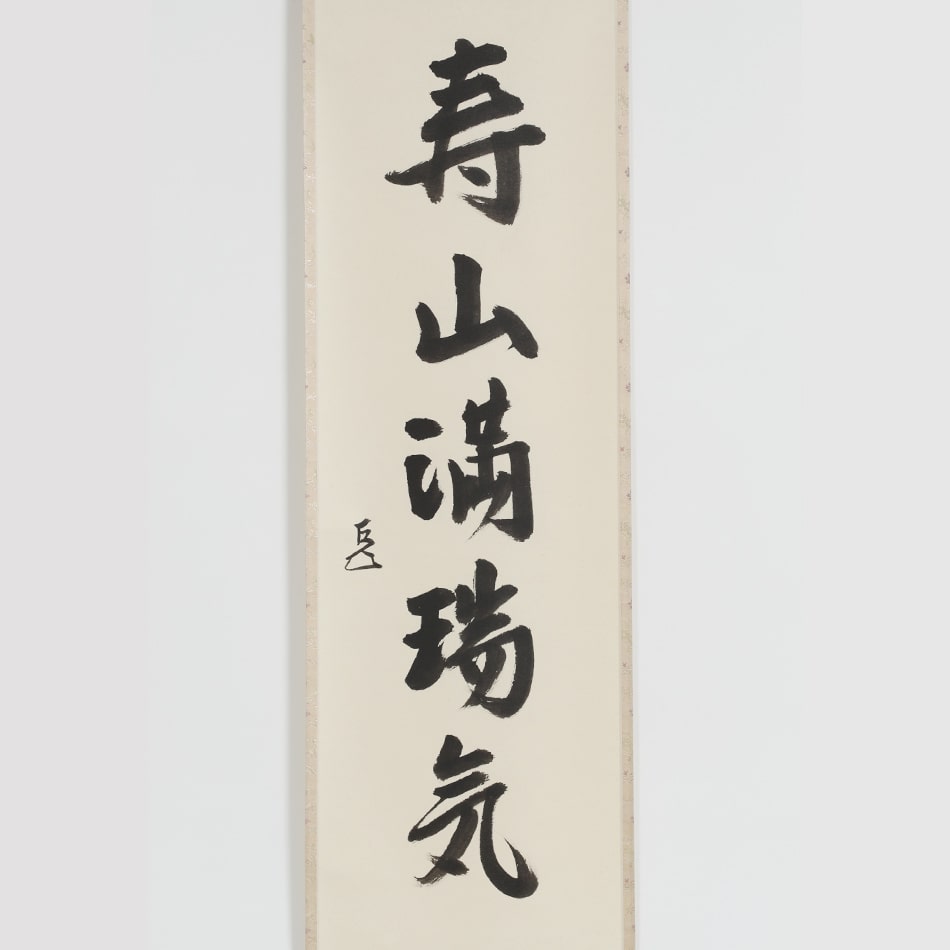 寿山満瑞気